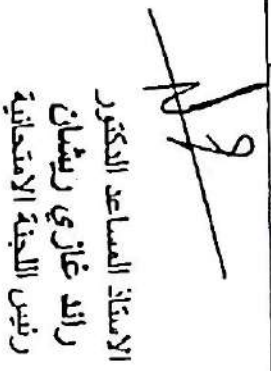 الاستاذ المساعد الدكتور
رائد غازي ريشان
رئيس اللجنة الامتحانية